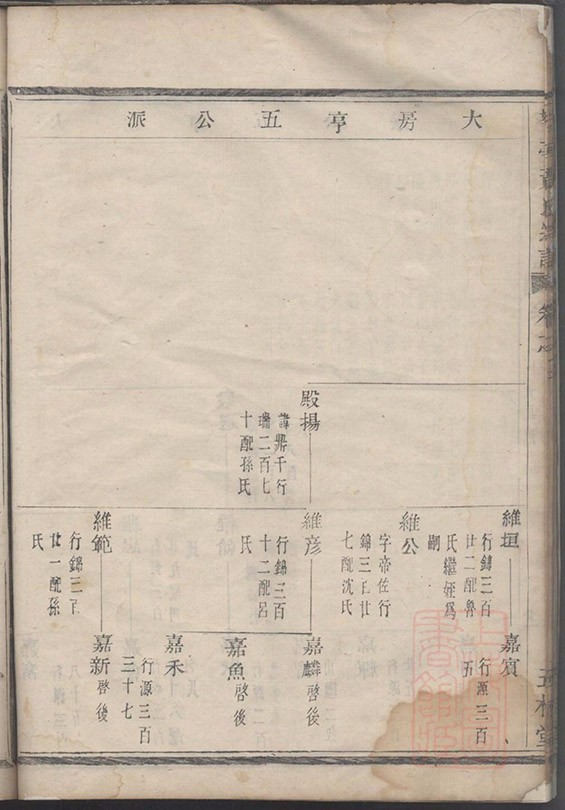 大房亨五公派
殿揚
諱鼎千行
瑞二百七
十配孫氏
維垣
行錦三百
廿二配魯
氏繼姪為
嗣
維公
字帝佐行
錦三百廿
七配沈氏
維彥
行錦三百
十二配呂
氏
維範
行錦三百
廿一配孫
氏
嘉賓
行源三百
五
嘉麟啓後
嘉魚啓後
嘉禾
行源三百
三十七
嘉新啓後